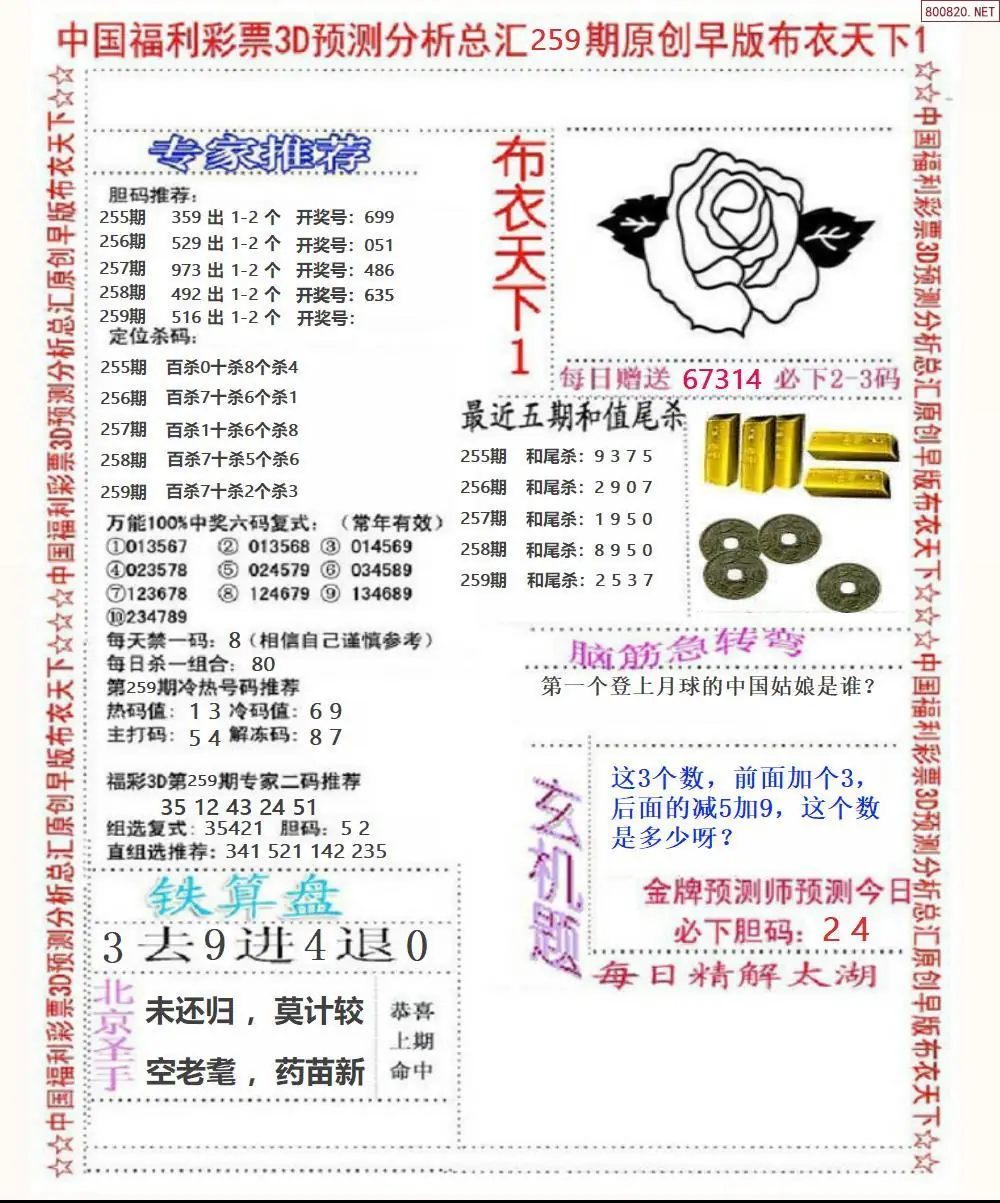 800820.NET
中国福利彩票3D预测分析总汇259期原创早版布衣天下1
☆☆中国福利彩票3D预测分析总汇原创早版布衣天下☆☆中国福利彩票3D预测分析总汇原创早版布衣天下☆☆
专家推荐
胆码推荐：
255期 359 出 1-2 个 开奖号：699
256期 529 出 1-2 个 开奖号：051
257期 973 出 1-2 个 开奖号：486
258期 492 出 1-2 个 开奖号：635
259期 516 出 1-2 个 开奖号：
定位杀码：
255期 百杀0十杀8个杀4
256期 百杀7十杀6个杀1
257期 百杀1十杀6个杀8
258期 百杀7十杀5个杀6
259期 百杀7十杀2个杀3
万能100%中奖六码复式：（常年有效）
①013567 ② 013568 ③ 014569
④023578 ⑤ 024579 ⑥ 034589
⑦123678 ⑧ 124679 ⑨ 134689
⑩234789
每天禁一码：8（相信自己谨慎参考）
每日杀一组合：80
第259期冷热号码推荐
热码值：1 3 冷码值：6 9
主打码：5 4 解冻码：8 7
福彩3D第259期专家二码推荐
35 12 43 24 51
组选复式：35421 胆码：5 2
直组选推荐：341 521 142 235
铁算盘
3去9进4退0
北京圣手
未还归，莫计较
空老耄，药苗新
恭喜
上期
命中
布衣天下1
每日赠送 67314 必下2-3码
最近五期和值尾杀
255期 和尾杀：9 3 7 5
256期 和尾杀：2 9 0 7
257期 和尾杀：1 9 5 0
258期 和尾杀：8 9 5 0
259期 和尾杀：2 5 3 7
脑筋急转弯
第一个登上月球的中国姑娘是谁？
玄机题
这3个数，前面加个3，
后面的减5加9，这个数
是多少呀？
金牌预测师预测今日
必下胆码：2 4
每日精解太湖
☆☆中国福利彩票3D预测分析总汇原创早版布衣天下☆☆中国福利彩票3D预测分析总汇原创早版布衣天下☆☆